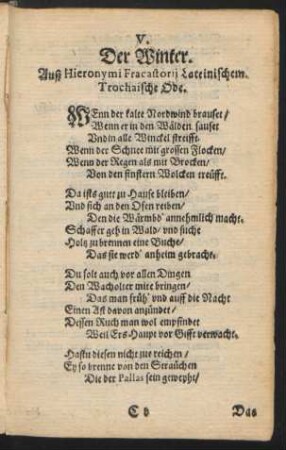 V.
Der Winter.
Auß Hieronymi Fracastorij Lateinischem.
Trochaische Ode.
WEnn der kalte Nordwind brauset/
Wenn er in den Wälden sauset
Vnd in alle Winckel streifft.
Wenn der Schnee mit grossen Flocken/
Wenn der Regen als mit Brocken/
Von den finstern Wolcken treüfft.
Da ists gutt zu Hause bleiben/
Vnd sich an den Ofen reiben/
Den die Wärmbd' annehmlich macht.
Schaffer geh in Wald/ vnd suche
Holtz zu brennen eine Buche/
Das sie werd' anheim gebracht.
Du solt auch vor allen Dingen
Den Wacholter mitte bringen/
Das man früh' vnd auff die Nacht
Einen Ast davon anzündet/
Dessen Ruch man wol empfindet
Weil Ers Haupt vor Gifft verwacht.
Hastu diesen nicht zue reichen/
Ey so brenne von den Sträuchen
Die der Pallas sein geweyht/
C v Das